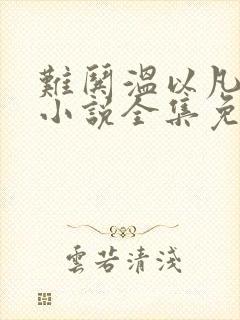 難鬨溫以凡
小說全集免
雲若清淺